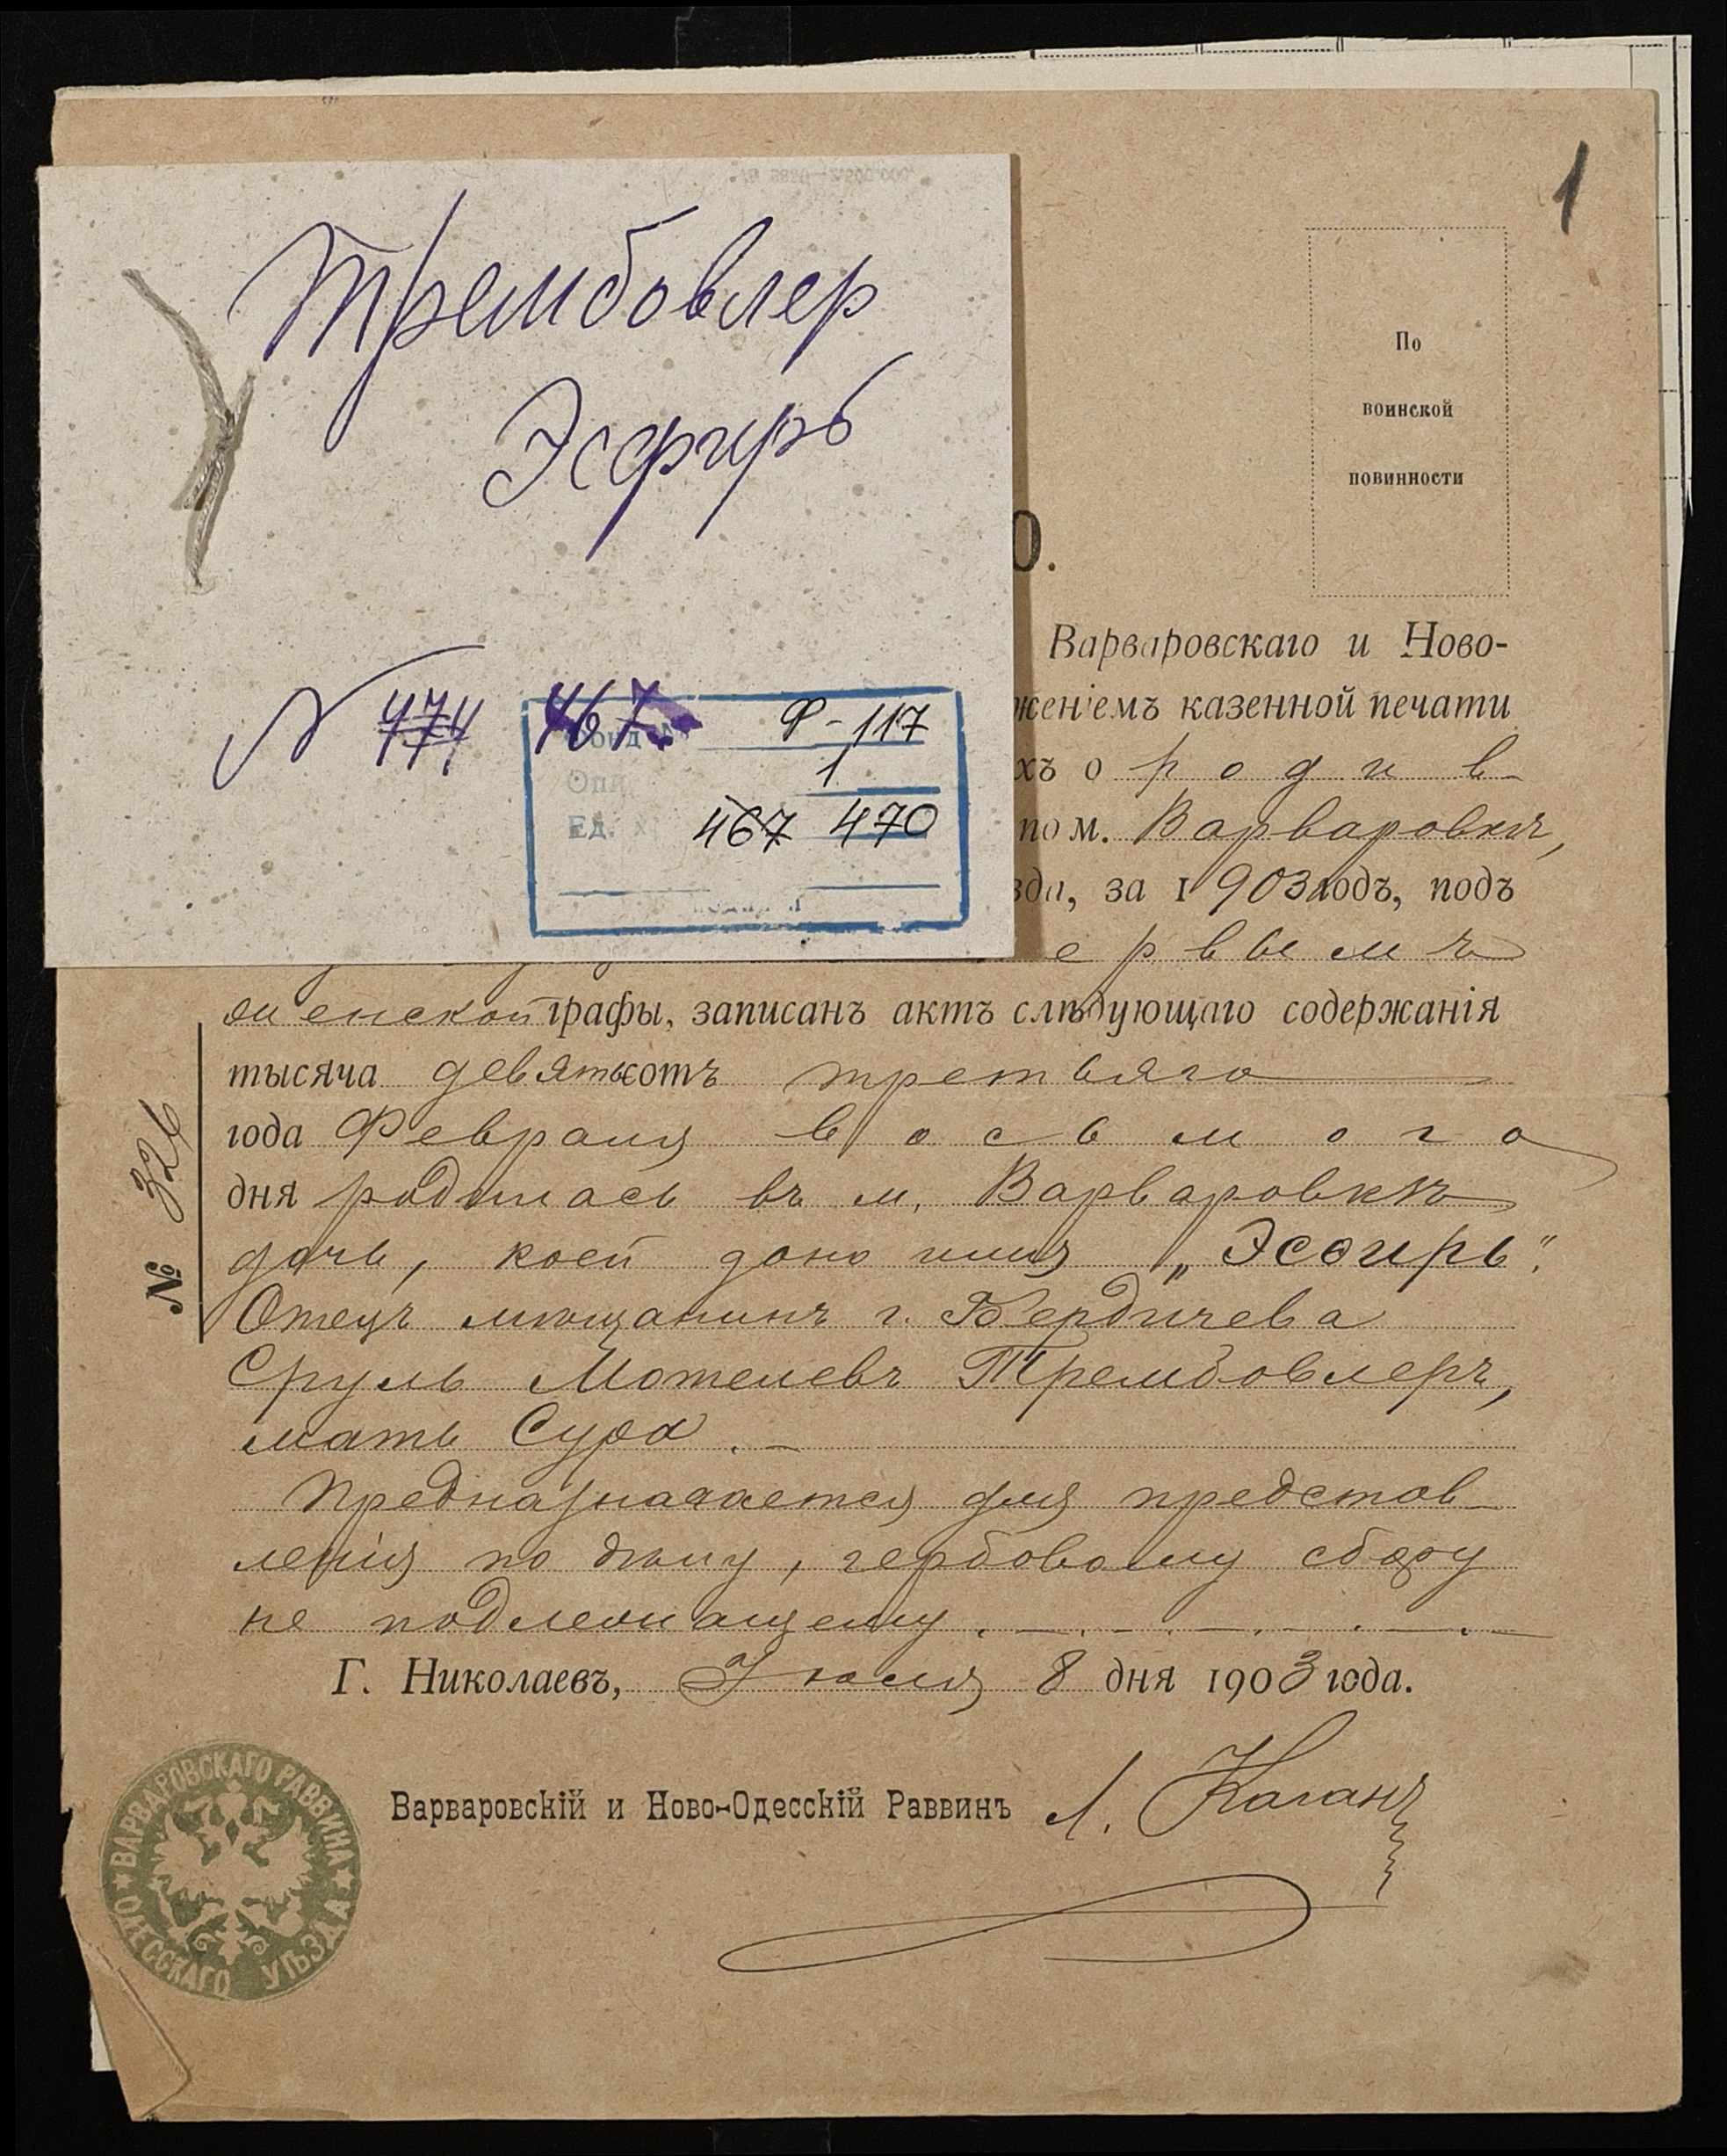 1
Трембовлер
Эсфирь
N 474 467
Фонд № Ф-117
Опи. 1
Ед. х 467 470
По
воинской
повинности
О.
Варваровскаго и Ново-
женіемъ казенной печати
хъ о родив-
по м. Варваровкѣ,
зда, за 1903 годъ, подъ
ервымъ
женской графы, записанъ актъ слѣдующаго содержанія
тысяча девятьсотъ третьяго
года Февраля восьмого
дня родилась въ м. Варваровкѣ
дочь, коей дано имя „Эсѳирь“.
Отецъ мѣщанинъ г. Бердичева
Сруль Мотелевъ Трембовлеръ,
мать Сура. –
Предназначается для представ-
ленія по дѣлу, гербовому сбору
не подлежащему.
Г. Николаевъ, Іюля 8 дня 1903 года.
№ 326
Варваровскій и Ново-Одесскій Раввинъ Л. Каганъ
ВАРВАРОВСКАГО РАВВИНА ОДЕССКАГО УѢЗДА